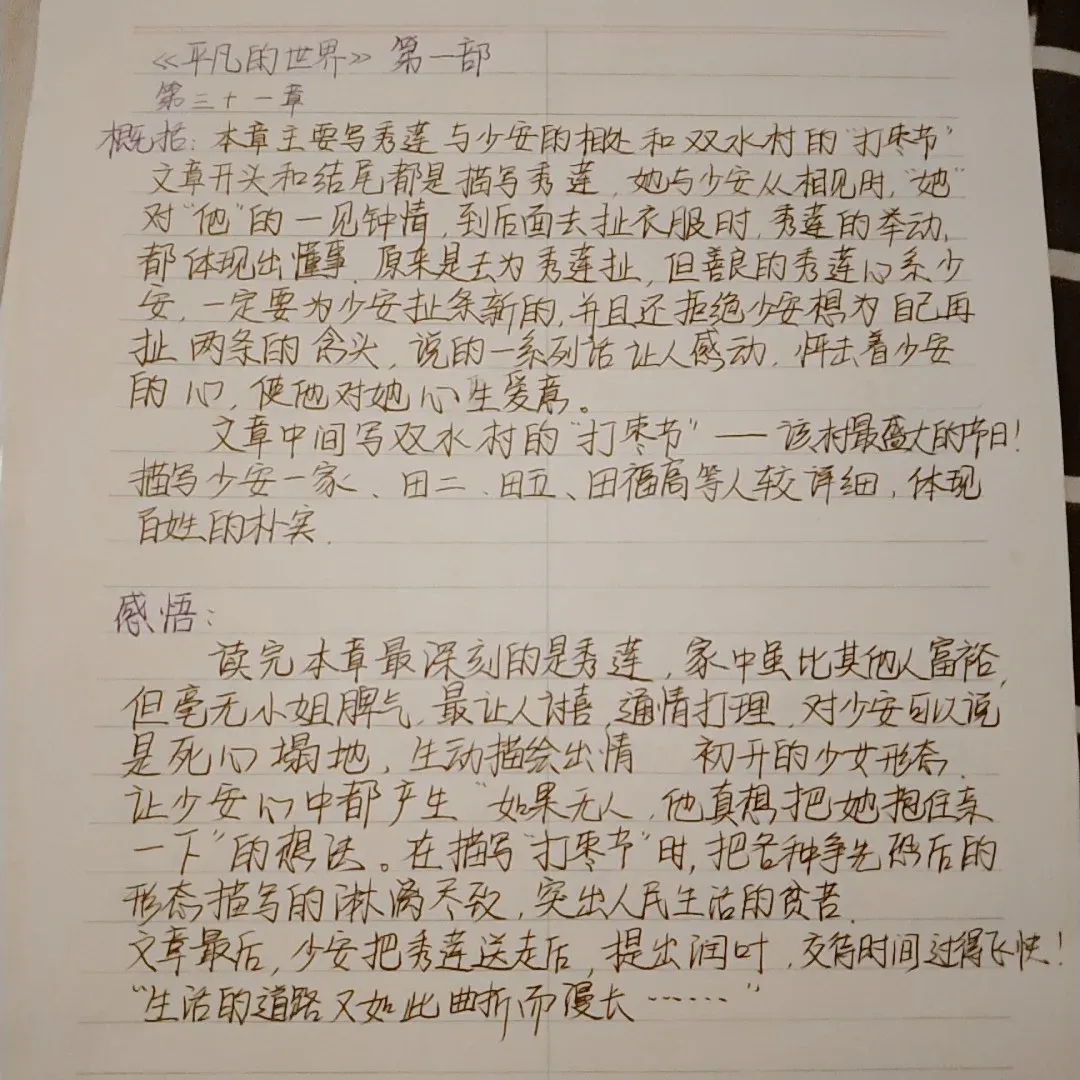 《平凡的世界》第一部
第三十一章
概括：本章主要写秀莲与少安的相处和双水村的"打枣节"
文章开头和结尾都是描写秀莲，她与少安从相见时，"她"
对"他"的一见钟情，到后面去扯衣服时，秀莲的举动，
都体现出懂事，原来是去为秀莲扯，但善良的秀莲心系少
安，一定要为少安扯条新的，并且还拒绝少安想为自己再
扯两条的念头，说的一系列话让人感动，怦击着少安
的心，使他对她心生爱意。
文章中间写双水村的"打枣节"——该村最盛大的节日！
描写少安一家、田二、田五、田福高等人较详细，体现
百姓的朴实.
感悟：
读完本章最深刻的是秀莲，家中虽比其他人富裕，
但毫无小姐脾气，最让人讨喜，通情打理，对少安可以说
是死心塌地，生动描绘出情 初开的少女形态.
让少安心中都产生"如果无人，他真想把她抱住亲
一下"的想法。在描写"打枣节"时，把各种争先恐后的
形态描写的淋漓尽致，突出人民生活的贫苦.
文章最后，少安把秀莲送走后，提出润叶，交待时间过得飞快！
"生活的道路又如此曲折而漫长……"